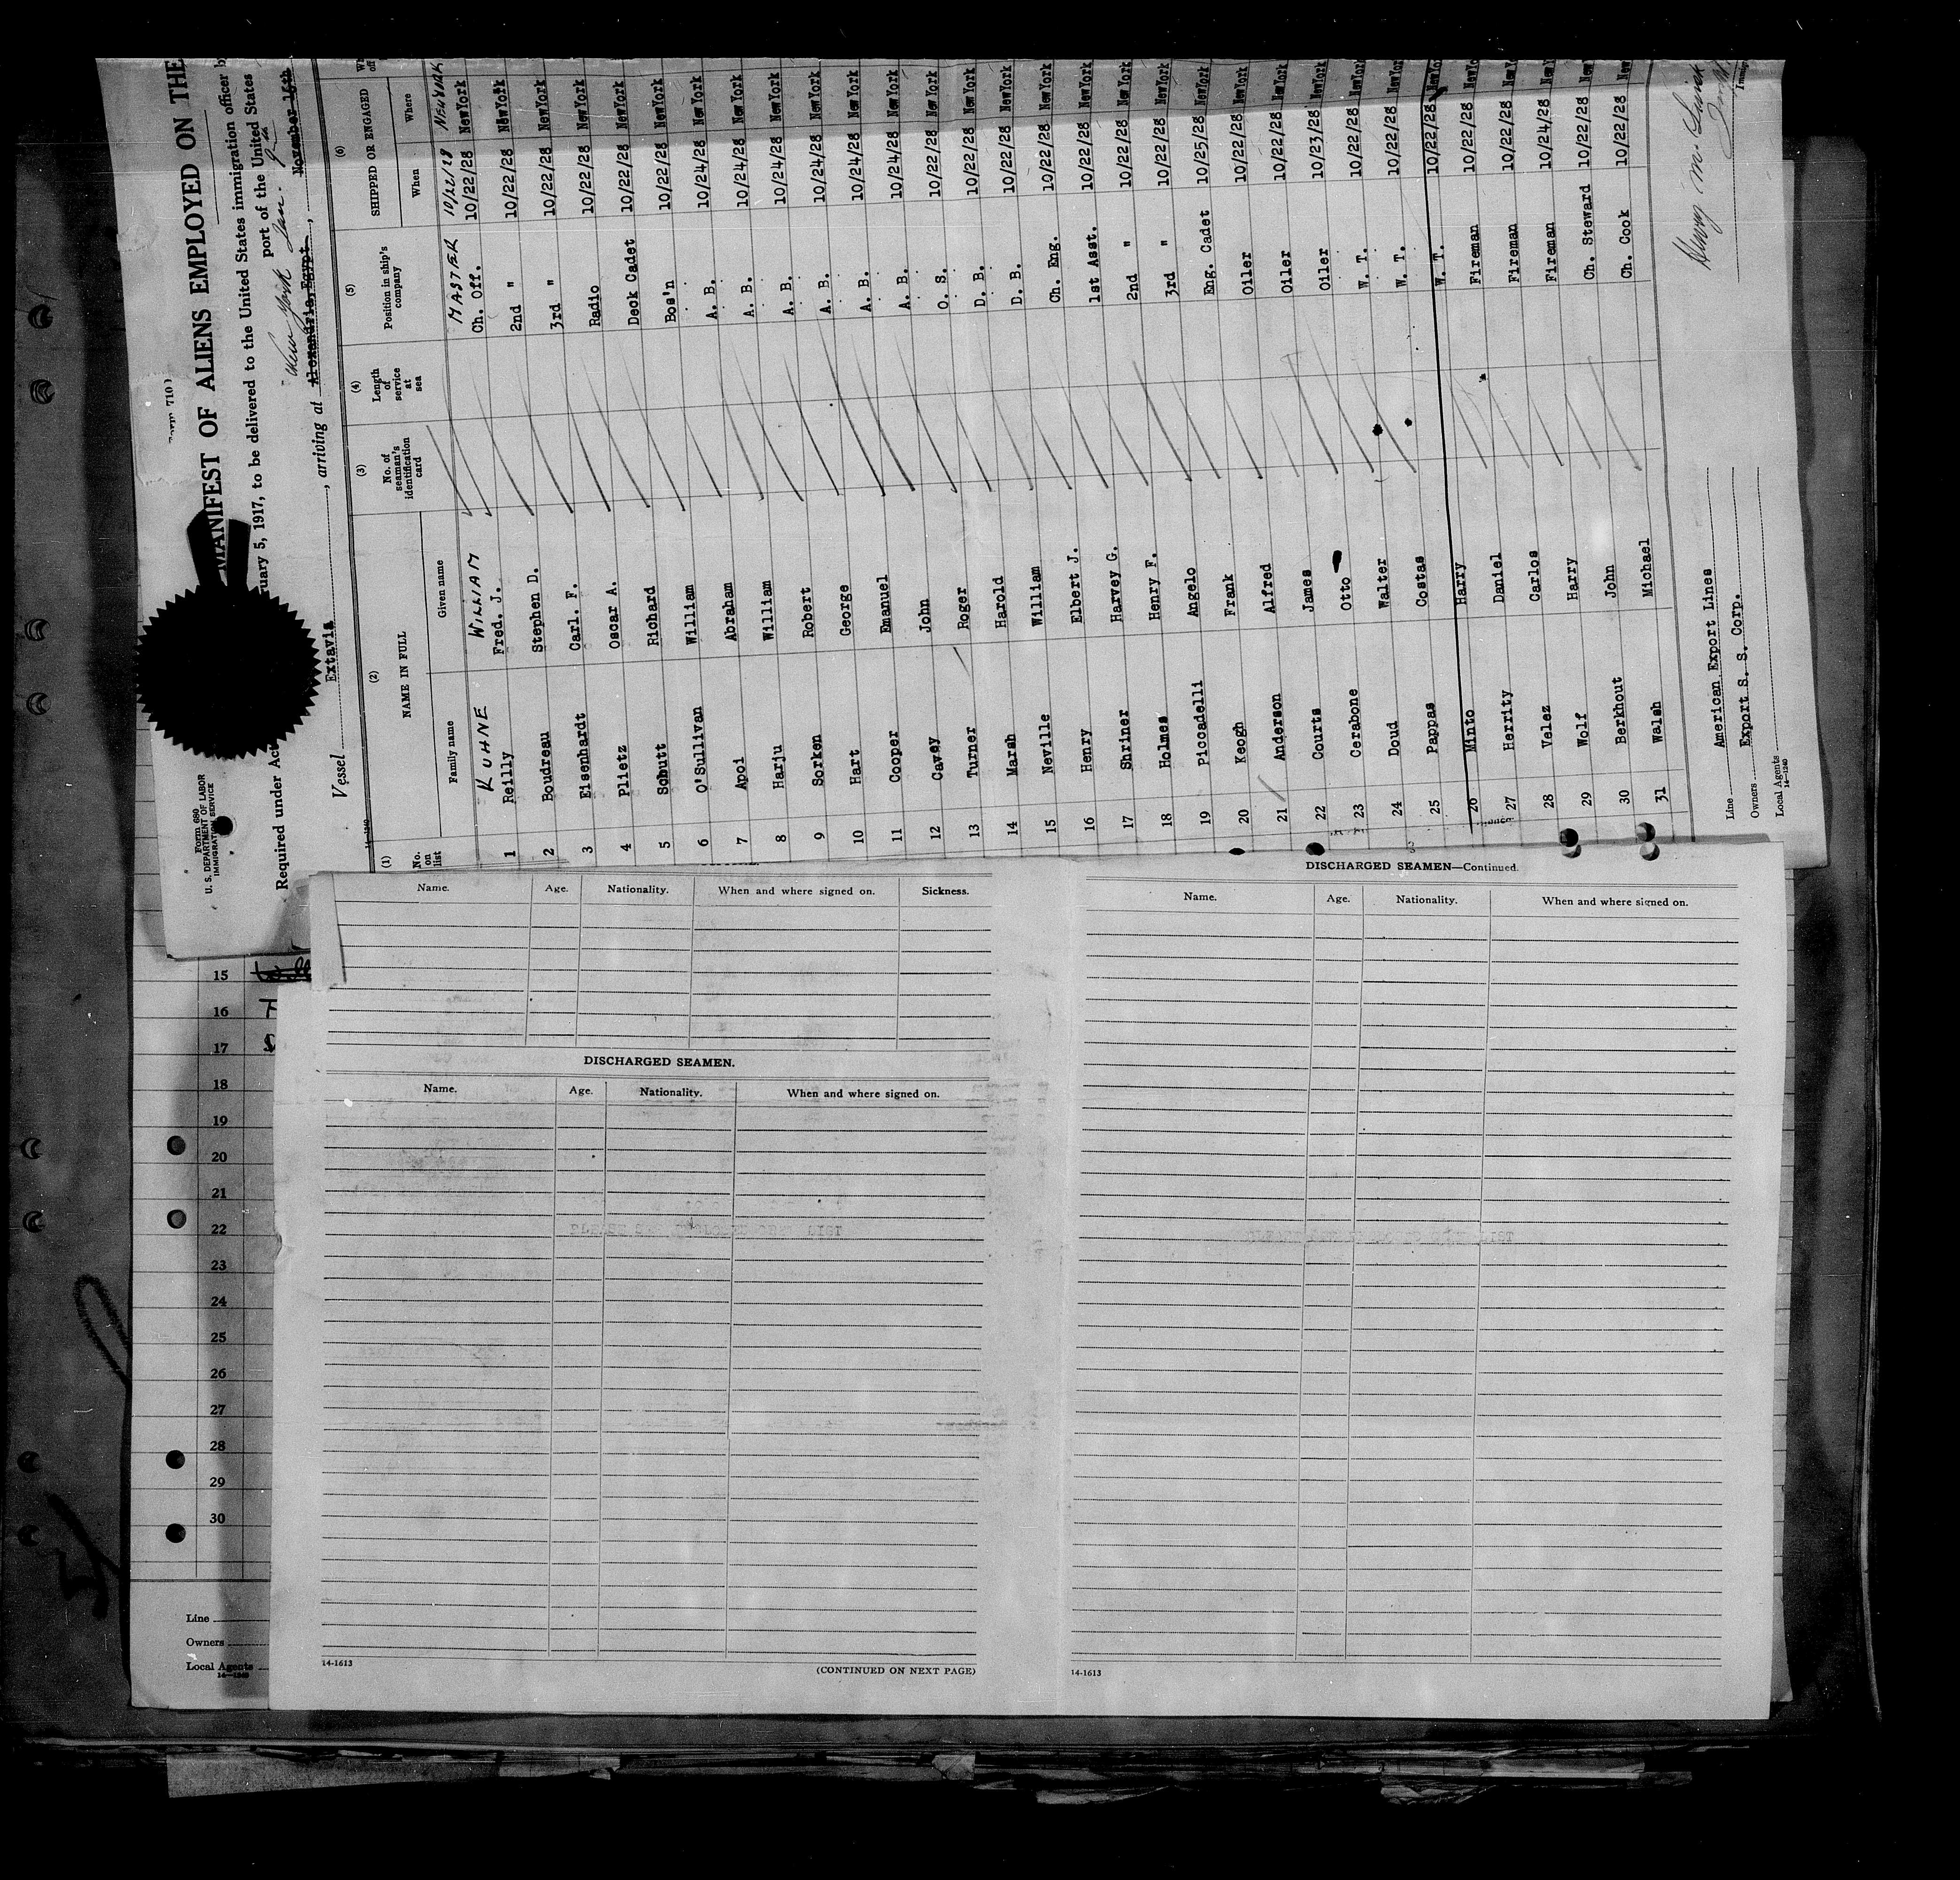 Form 680
U. S. DEPARTMENT OF LABOR
IMMIGRATION SERVICE
MANIFEST OF ALIENS EMPLOYED ON THE
Required under Act
ruary 5, 1917, to be delivered to the United States immigration officer b
port of the United States
Vessel Extavia, arriving at Alexandria, Egypt, November 16th
New York Jan.
(1) No. on list
(2) NAME IN FULL
Family name Given name
(3) No. of seaman's identification card
(4) Length of service at sea
(5) Position in ship's company
(6) SHIPPED OR ENGAGED
When Where
KUHNE WILLIAM MASTER 10/22/28 NEW YORK
1 Reilly Fred. J. Ch. Off. 10/22/28 New York
2 Boudreau Stephen D. 2nd " 10/22/28 New York
3 Eisenhardt Carl. F. 3rd " 10/22/28 New York
4 Plietz Oscar A. Radio 10/22/28 New York
5 Schutt Richard Deck Cadet 10/22/28 New York
6 O'Sullivan William Bos'n 10/22/28 New York
7 Apoi Abraham A. B. 10/24/28 New York
8 Harju William A. B. 10/24/28 New York
9 Sorken Robert A. B. 10/24/28 New York
10 Hart George A. B. 10/24/28 New York
11 Cooper Emanuel A. B. 10/24/28 New York
12 Cavey John A. B. 10/24/28 New York
13 Turner Roger O. S. 10/22/28 New York
14 Marsh Harold D. B. 10/22/28 New York
15 Neville William D. B. 10/22/28 New York
16 Henry Elbert J. Ch. Eng. 10/22/28 New York
17 Shriner Harvey G. 1st Asst. 10/22/28 New York
18 Holmes Henry F. 2nd " 10/22/28 New York
19 Piccadelli Angelo 3rd " 10/22/28 New York
20 Keogh Frank Eng. Cadet 10/25/28 New York
21 Anderson Alfred Oiler 10/22/28 New York
22 Courts James Oiler 10/22/28 New York
23 Cerabone Otto Oiler 10/23/28 New York
24 Doud Walter W. T. 10/22/28 New York
25 Pappas Costas W. T. 10/22/28 New York
26 Minto Harry W. T. 10/22/28 New York
27 Herrity Daniel Fireman 10/22/28 New Yo
28 Velez Carlos Fireman 10/22/28 New Y
29 Wolf Harry Fireman 10/24/28 New Y
30 Berkhout John Ch. Steward 10/22/28 New
31 Walsh Michael Ch. Cook 10/22/28 New
Line American Export Lines
Owners Export S. S. Corp.
Local Agents
14—1240
15
16
17
18
19
20
21
22
23
24
25
26
27
28
29
30
Line
Owners
Local Agents
14—1240
Name. Age. Nationality. When and where signed on. Sickness.
DISCHARGED SEAMEN.
Name. Age. Nationality. When and where signed on.
14-1613
(CONTINUED ON NEXT PAGE)
DISCHARGED SEAMEN—Continued.
Name. Age. Nationality. When and where signed on.
14-1613